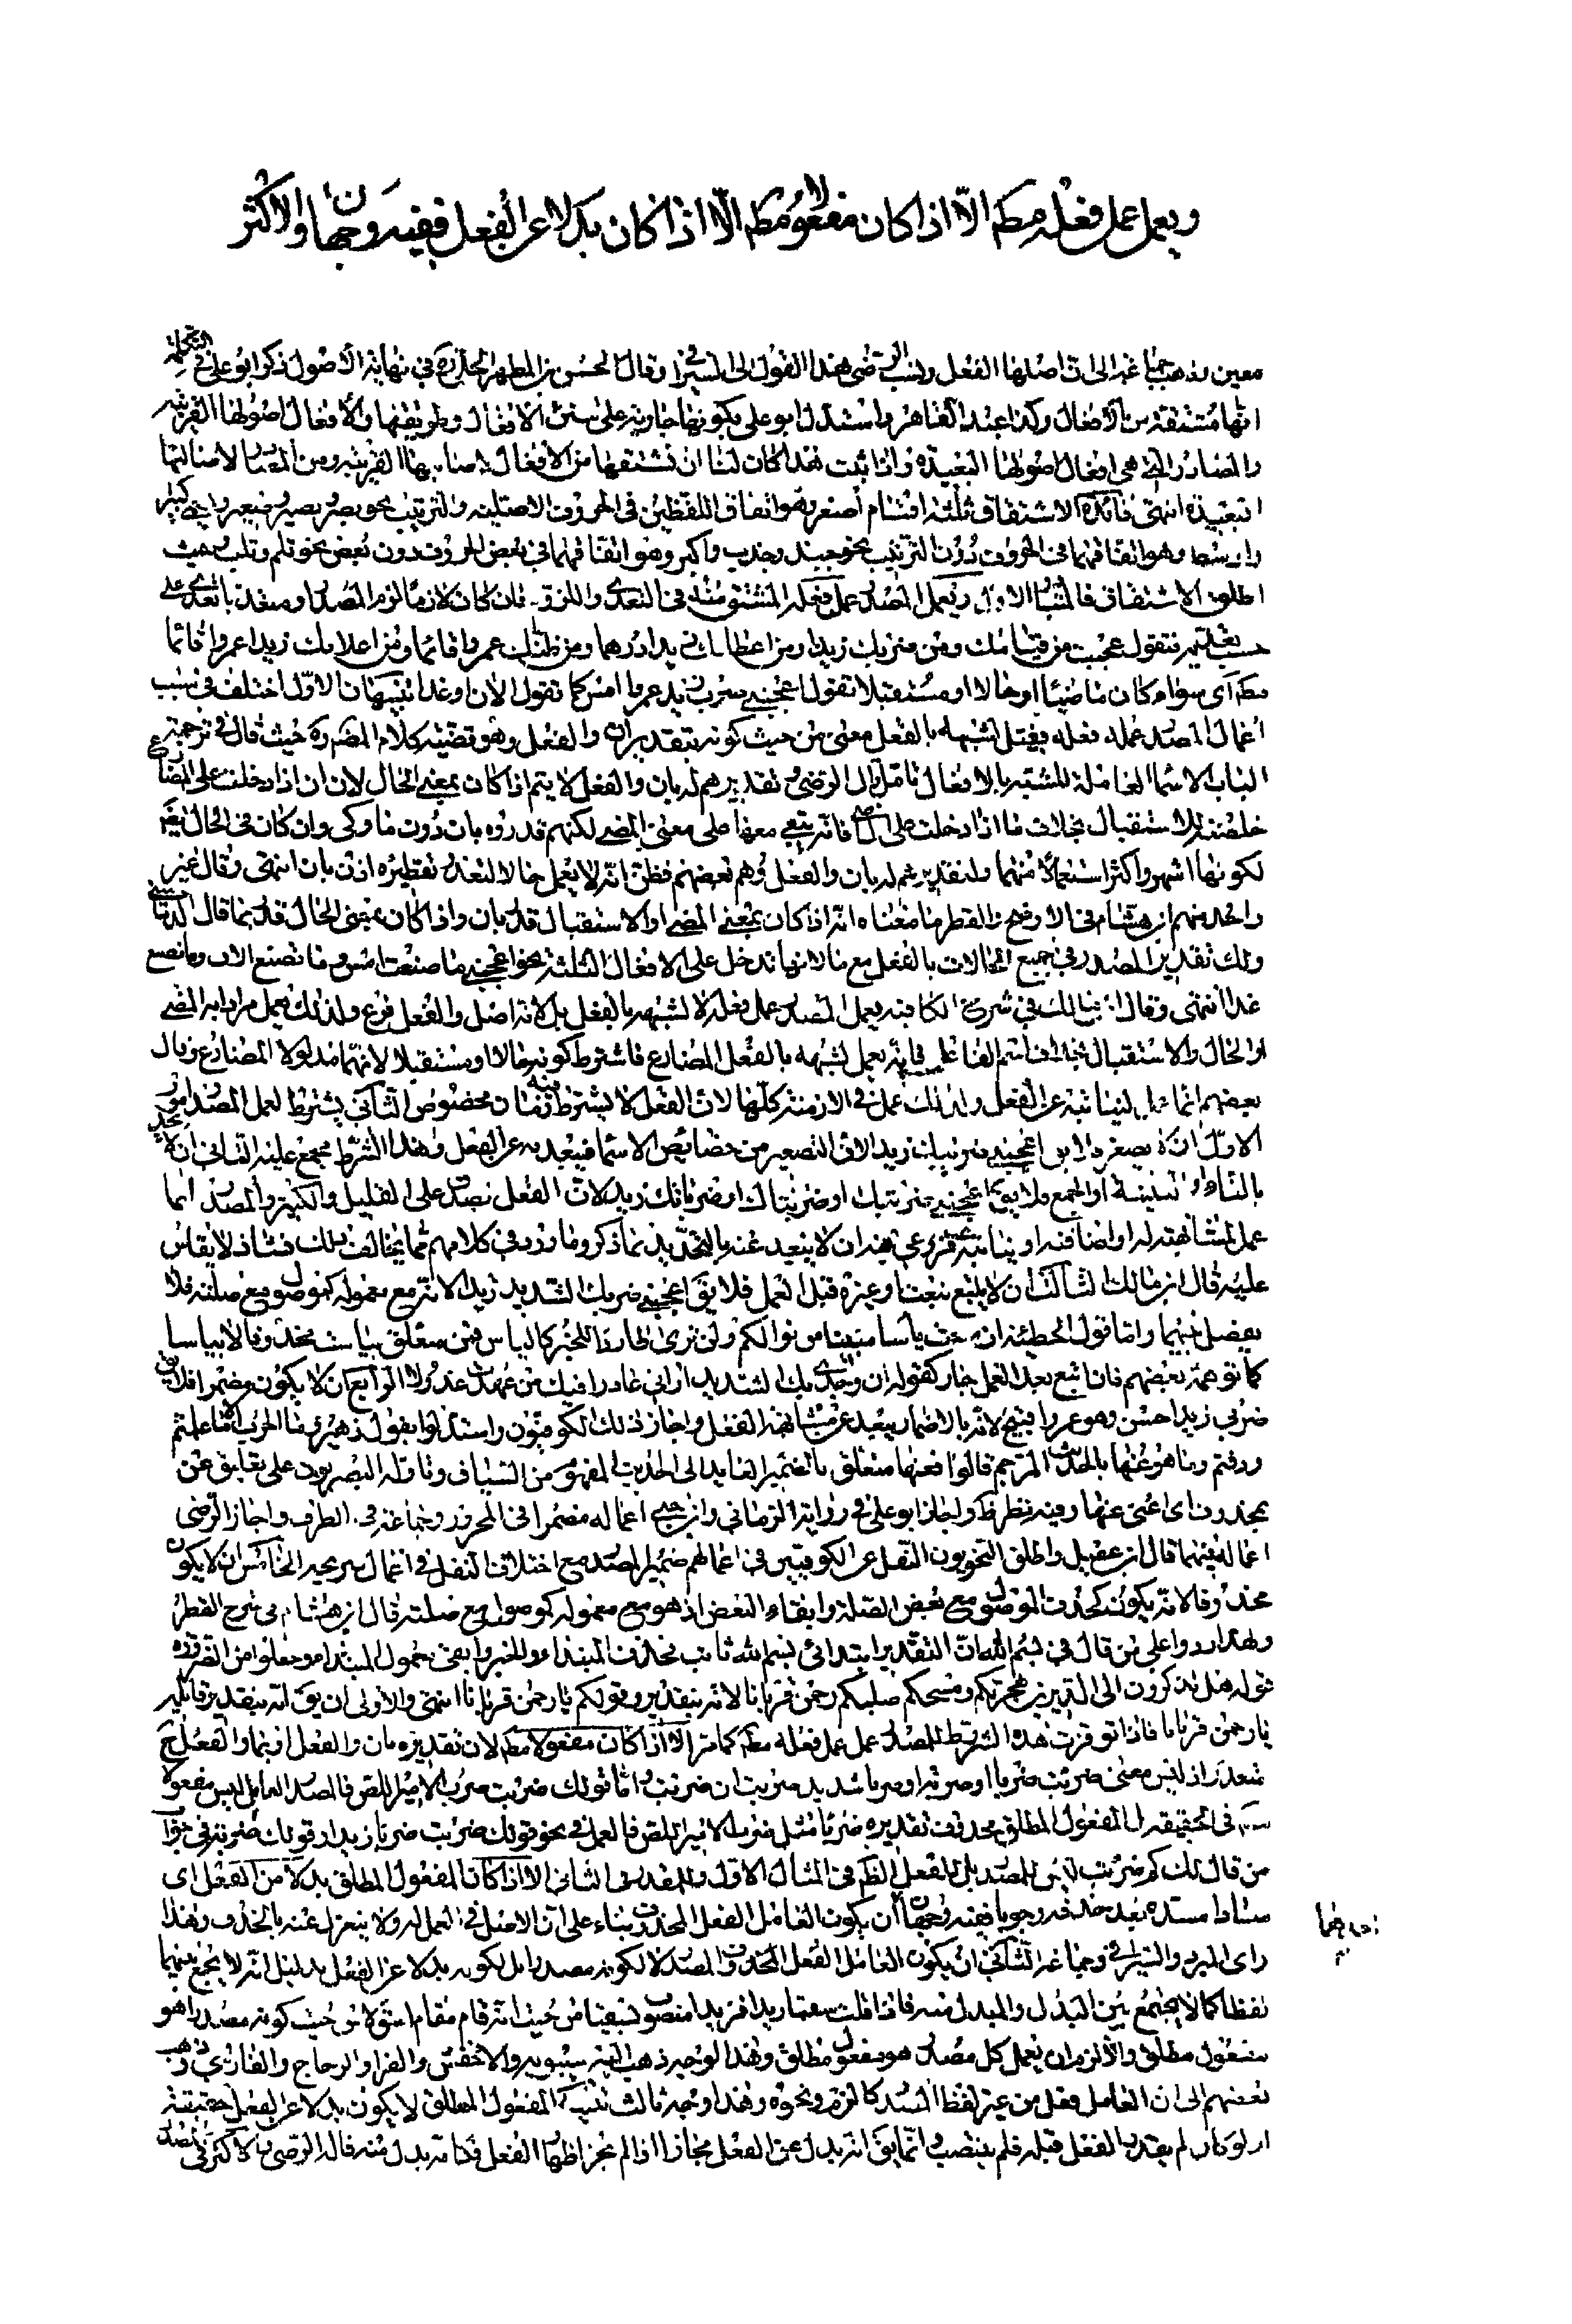 ويعمل عمل فعله مطـ الّا اذا كان مفعولا مطـ الّا اذا كان بدلا عن الفعل ففيه وجهان والاكثر
معين بذهب جماعة الى ان اصلها الفعل ونسب الرضى هذا القول الى السيرافى وقال الحسن بن المطهر في نهاية الاصول ذكر ابو علي في التكملة
انها مشتقة من الافعال وكذا عبد القاهر واستدل ابو علي بكونها جارية على سنن الافعال وطريقتها والافعال اصولها القريبة
والمصادر التي هي افعال اصولها البعيدة واذا ثبت هذا كان لنا ان نشتقها من الافعال لانها القريبة ومن المصادر لاصالتها
البعيدة انتهى فائدة الاشتقاق ثلثة اقسام اصغر وهو اتفاق اللفظين في الحروف الاصلية والترتيب نحو بصر بصير
واوسط وهو اتفاقهما في الحروف دون الترتيب نحو جبذ وجذب واكبر وهو اتفاقهما في بعض الحروف دون بعض نحو ثلم وثلب وحيث
اطلق الاشتقاق فالمتبادر الاول ويعمل المصدر عمل فعله المشتق منه في التعدى واللزوم فان كان لازما لزم المصدر او متعديا تعدى على
حسب تعديته فتقول عجبت من قيامك ومن ضربك زيدا ومن اعطائك زيدا درهما ومن ظنك عمروا قائما ومن اعلامك زيدا عمروا قائما
مطـ اى سواء كان ماضيا او حالا او مستقبلا تقول اعجبني ضرب زيد عمروا امس كما تقول الان او غدا تنبيهان الاول اختلف في سبب
اعمال المصدر عمل فعله فقيل لشبهه بالفعل معنى من حيث كونه بتقدير ان والفعل وهو قضية كلام المصـ ره حيث قال في ترجمة
الباب الاسماء العاملة المشبهة بالافعال تامل قال الرضى تقديرهم له بان والفعل لا يتم اذا كان بمعنى الحال لان ان اذا دخلت على المضارع
خلصته للاستقبال بخلاف ما اذا دخلت على الماضى فانه يبقى معها على معنى المضى لكنهم قدروه بان دون ما وكى وان كان في الحال ايضم
لكونها اشهر واكثر استعمالا منهما ولتقديرهم له بان والفعل وهم بعضهم فظن انه لا يعمل حالا لتعذر تقديره اذن بان انتهى وقال غير
واحد منهم ابن هشام في الاوضح والقطر ما معناه انه اذا كان بمعنى المضى او الاستقبال قدر بان واذا كان بمعنى الحال قدر بما قال الدمامينى
ولك تقدير المصدر في جميع الحالات بالفعل مع ما لانها تدخل على الافعال الثلثة نحو اعجبني ما صنعت امس وما تصنع الان وما تصنع
غدا انتهى وقال ابن مالك في شرح الكافية يعمل المصدر عمل فعله لا لشبهه بالفعل بل لانه اصل والفعل فرع ولذلك يعمل مرادا به المضى
او الحال والاستقبال بخلاف اسم الفاعل فانه يعمل لشبهه بالفعل المضارع فاشترط كونه حالا او مستقبلا لانهما مدلولا المضارع وقال
بعضهم انما عمل لنيابته عن الفعل ولذلك عمل في الازمنة كلها لان الفعل لا يشترط فيه زمان مخصوص الثاني يشترط لعمل المصدر امور
الاول ان لا يصغر فلا يق اعجبني ضريبك زيدا لان التصغير من خصائص الاسماء فيبعد به عن الفعل وهذا الشرط مجمع عليه الثاني ان لا يحد
بالتاء او التثنية او الجمع فلا يق اعجبني ضربتك او ضربتاك او ضرباتك زيدا لان الفعل يصدق على القليل والكثير والمصدر انما
عمل لمشابهته له او اصالته او نيابته فروعي فيه ان لا يبعد عنه بالتحديد بما ذكر وما ورد في كلامهم مما يخالف ذلك فشاذ لا يقاس
عليه قال ابن مالك الثالث ان لا يتبع بنعت او غيره قبل العمل فلا يق اعجبني ضربك الشديد زيدا لانه مع معموله كموصول مع صلته فلا
يفصل بينهما واما قول الحطيئة ازمعت ياسا مبينا من نوالكم ولن ترى طاردا للحر كالياس فمن متعلق بيئست محذوفا لا بياسا
كما توهمه بعضهم فان اتبع بعد العمل جاز كقوله ان وجدى بك الشديد ارانى غادرا فيك من عهدت عذولا الرابع ان لا يكون مضمرا فلا يق
ضربى زيدا حسن وهو عمروا قبيح لانه بالاضمار يبعد عن مشابهة الفعل واجاز ذلك الكوفيون واستدلوا بقول زهير وما الحرب الا ما علمتم
وذقتم وما هو عنها بالحديث المرجم قالوا فعنها متعلق بالضمير العايد الى الحديث المفهوم من السياق وتاوله البصريون على تعليق عن
بمحذوف اى اعنى عنها وفيه نظر ظـ واجاز ابو على في رواية الرمانى وابن جنى اعماله مضمرا في المجرور وجماعة في الظرف واجاز الرضى
اعماله فيهما قال ابن عقيل واطلق النحويون النقل عن الكوفيين في اعمالهم ضمير المصدر مع اختلاف النقل في اعمال صريحه الخامس ان لا يكون
محذوفا لانه يكون كحذف الموصول مع بعض الصلة وابقاء البعض اذ هو مع معموله كموصول مع صلته قال ابن هشام في شرح القطر
ولهذا ردوا على من قال في بسم الله ان التقدير ابتدائى بسم الله ثابت بحذف المبتداء والخبر وابقى معمول المبتداء وجعلوا من الضرورة
قوله هل تذكرون الى الديرين هجرتكم ومسحكم صلبكم رحمن قربانا لانه بتقدير وقولكم يا رحمن قربانا انتهى والاولى ان يق انه بتقدير قائلين
يا رحمن قربانا فاذا توفرت هذه الشرايط للمصدر عمل عمل فعله مطـ كما مر الا اذا كان مفعولا مطـ لان تقديره بان والفعل او بما والفعل ح
متعذر اذ ليس معنى ضربت ضربا او ضربة او ضربا شديد ضربت ان ضربت واما قولك ضربت ضرب الامير اللص فالمصدر العامل ليس مفعولا
مطـ في الحقيقة بل المفعول المطلق محذوف تقديره ضربا مثل ضرب الامير اللص فالعمل في نحو قولك ضربت ضربا زيدا وقولك ضربته في جواب
من قال لك كم ضربت ليس للمصدر بل للفعل الظـ في المثال الاول وللمقدر في الثاني الا اذا كان المفعول المطلق بدلا من الفعل اى
سادا مسده بعد حذفه وجوبا ففيه وجهان ان يكون العامل الفعل المحذوف بناء على ان الاصل في العمل له ولا ينعزل عنه بالحذف وهذا
راى المبرد والسيرافى وجماعة الثاني ان يكون العامل الفعل المحذوف المصدر لا لكونه مصدرا بل لكونه بدلا عن الفعل بدليل انه لا يجمع بينهما
لفظا كما لا يجتمع بين البدل والمبدل منه فاذا قلت سقيا زيدا فزيدا منصوب بسقيا من حيث انه قام مقام اسق لا من حيث كونه مصدرا هو
مفعول مطلق والا لزم ان يعمل كل مصدر هو مفعول مطلق وهذا الوجه ذهب اليه سيبويه والاخفش والفراء والزجاج والفارسى وذهب
بعضهم الى ان العامل فعل من غير لفظ المصدر كالزم ونحوه وهذا وجه ثالث تنبيه المفعول المطلق لا يكون بدلا عن الفعل حقيقة
اذ لو كان لم يقدر الفعل قبله فلم ينتصب وانما يق انه بدل عن الفعل مجازا اذا لم يجز اظهار الفعل فكانه بدل منه قاله الرضى والاكثر في